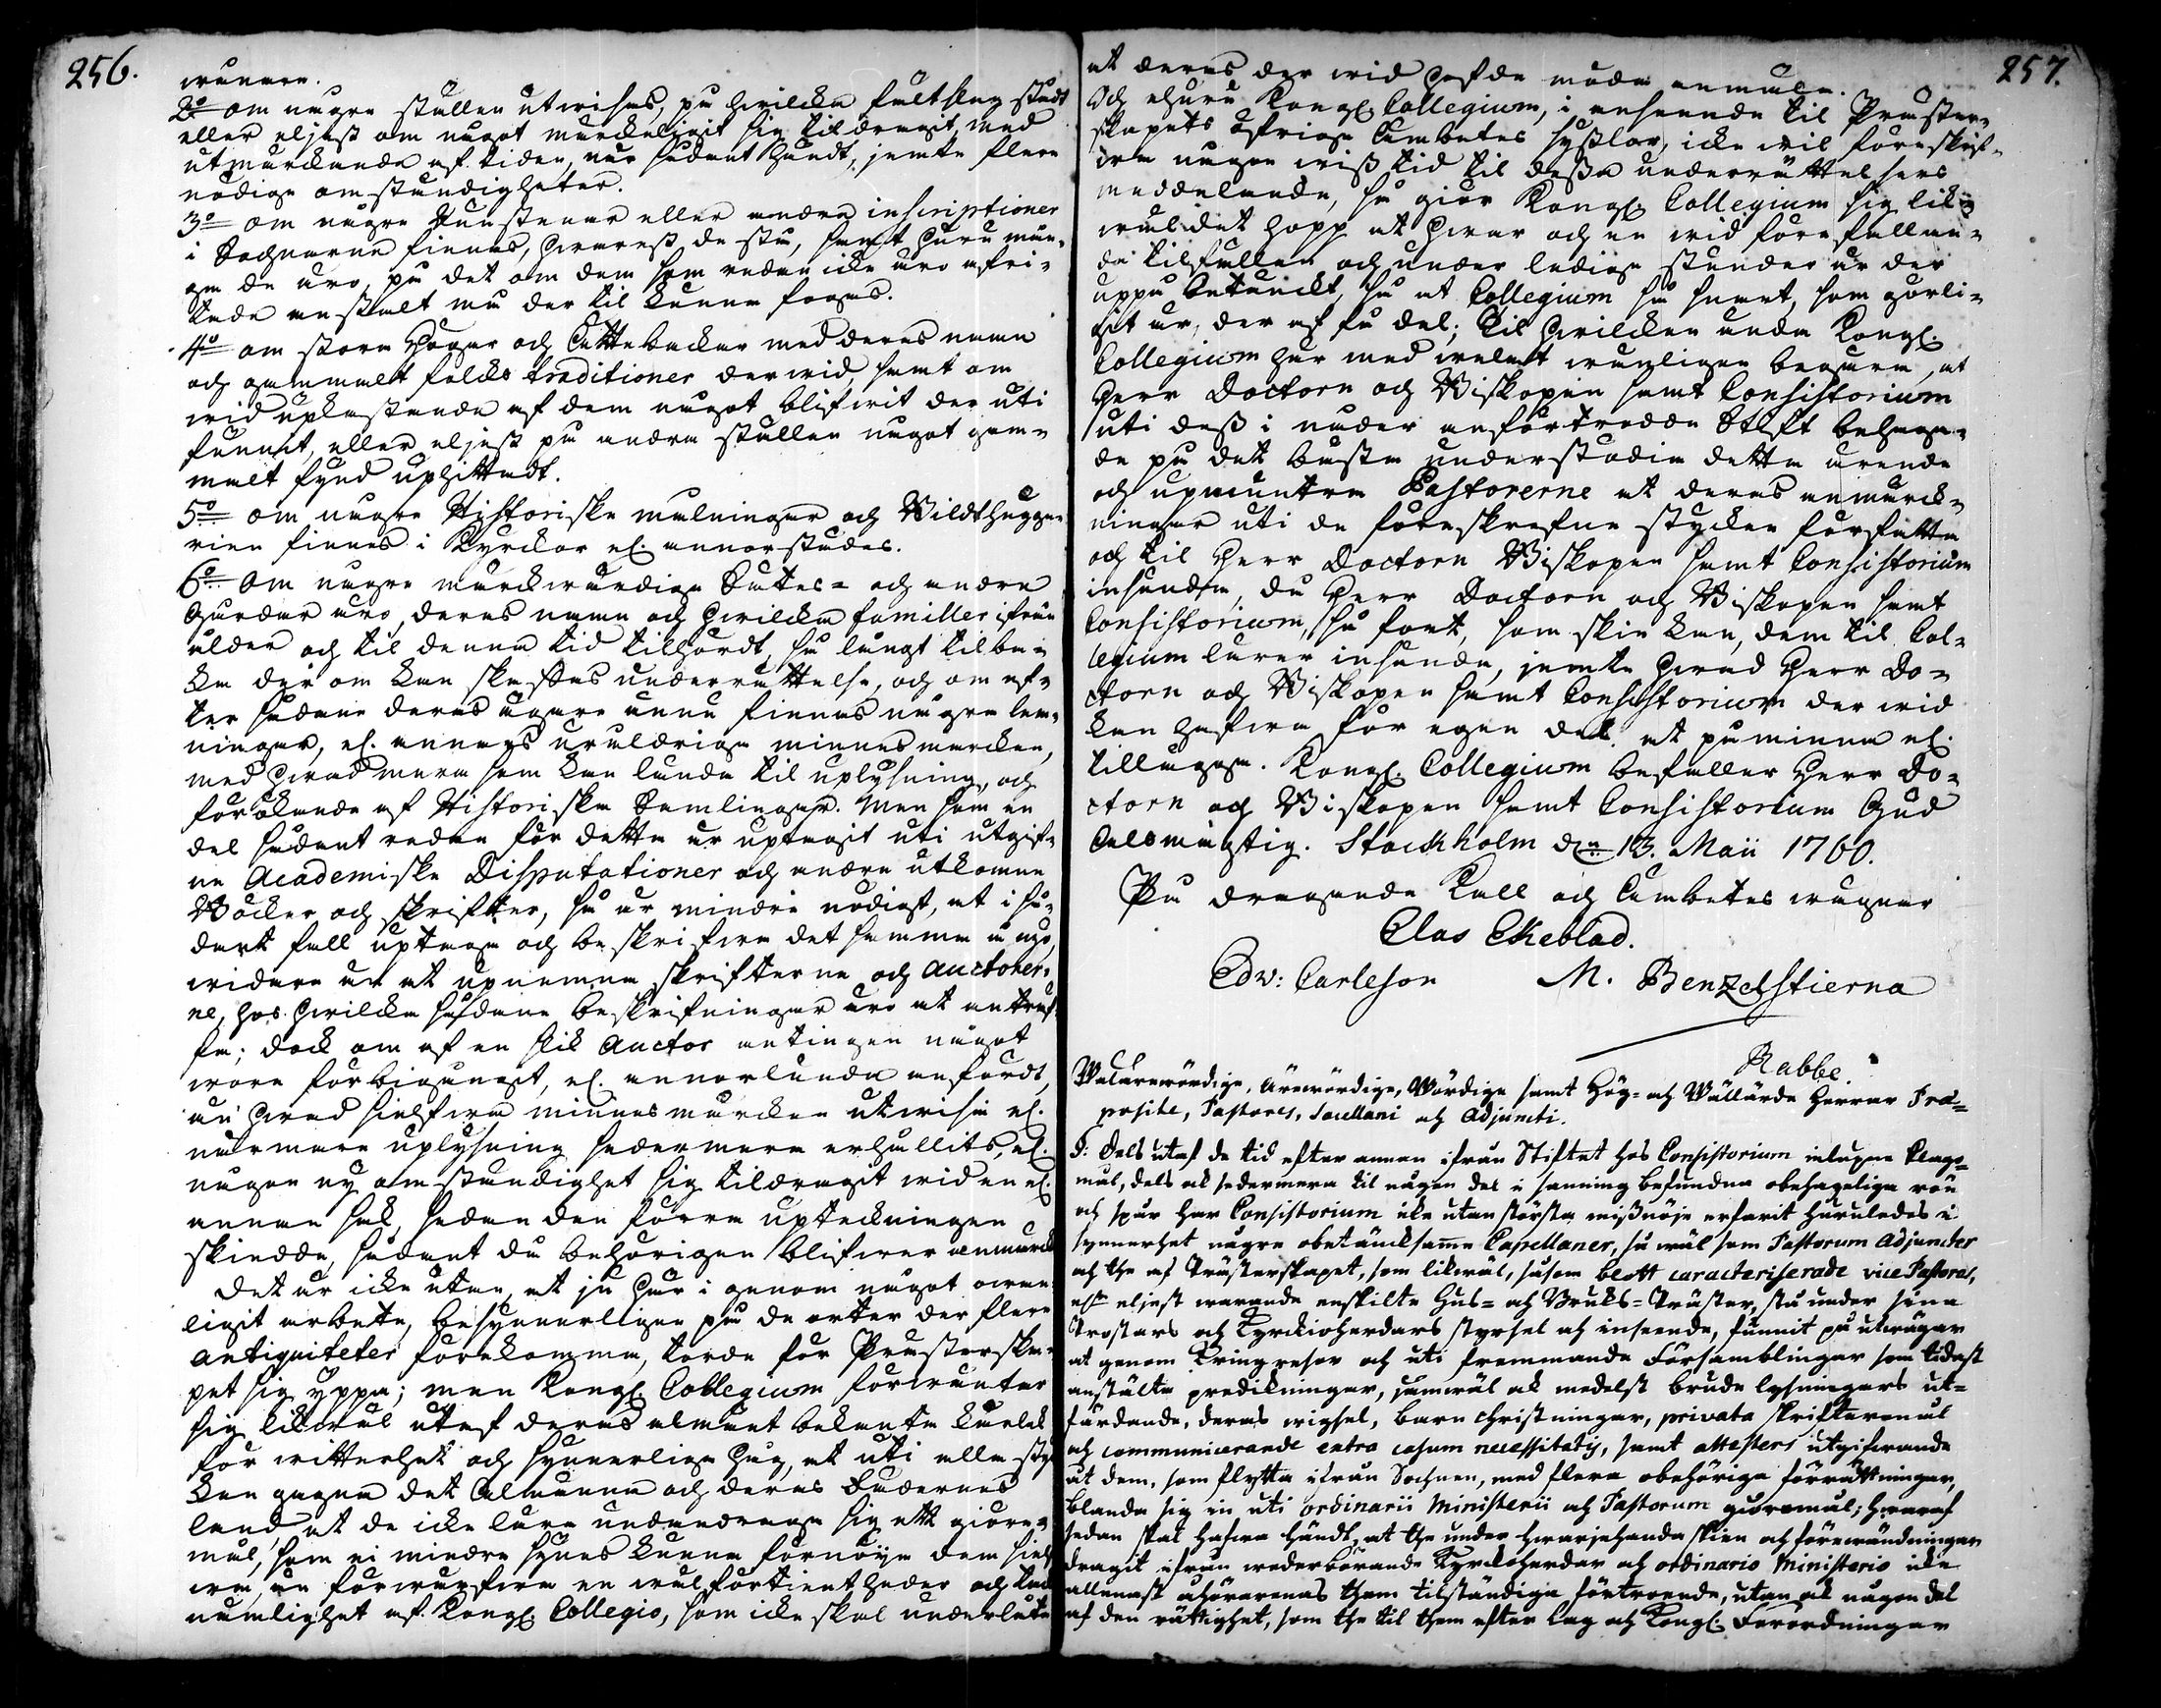 256.
warare.
2:o om någre ställen utwisas, på hwilcka fältslag stådt
eller eljest om något märckeligit sig tildragit, med
utmärckande af tiden, når sådant händt, jemte flere
nödige omständigheter.
3:o om någre Runstenar eller andra inscriptioner
i Sochnarna finnas, hwarest de stå, samt huru mån-
ga de äro, på det om dem som redan icke äro afri-
tade anstalt må der til kunna fogas.
4:o om stora Högar och Ättebackar med deras namn
och gammalt folcks traditioner derwid, samt om
wid upkastande af dem något blifwit der uti
funnit, eller eljest på andra ställen något gam-
malt fynd uphittadt.
5:o om någre Historiske målningar och Bildthuggε-
rier finnas i Kyrckor el. annorstädes.
6:o om någre märckwärdige Sätes- och andra
Gårdar äro, deras namn och hwilcka familler ifrån
ålder och til denna tid tilhördt, så långt tilba-
ka der om kan skaffas underrättelse, och om ef-
ter sådane deras ägare ännu finnas någre lem-
ningar, el. annars uråldrige minnesmärcken,
med hwad mera som kan lända til uplysning, och
förökande af Historiske Samlingar. Men som en
del sådant redan för detta är uptagit uti utgif-
ne Academiske Disputationer och andra utkomne
Böcker och skrifter, så är mindre nödigt, at i så-
dant fall uptaga och beskrifwa det samma ä nyo,
widare än at upnämna skrifterne och Auctorer-
ne, hos hwilcka sådane beskrifningar äro at antræf-
fa; dock om af en slik Auctor antingen något
wore förbigångit, el. annorlunda anfördt,
än hwad sielfwa minnesmärcken utwisa el.
närmare uplysning sedermera erhållits, el.
någon ny omständighet sig tildragit wid en el.
annan sak, sedan den förra upteckningen
skiedde, sådant då behörigen blifwer anmärckt
Det är icke utan, at ju här igenom något owan-
ligit arbete, besynnerligen på de orter der flere
Antiquiteter förekomma, torde för Prästerska-
pet sig yppa; men Kongl. Collegium förwäntar
sig likwäl utaf deras almänt bekanta kärlek
för witterhet och synnerliga hug, at uti alla styc
ken gagna det Almänna och deras Fädernes
land, at de icke lära undandraga sig ett giöre-
mål, som ei mindre synes kunna förnöija dem sielf
wa, än förwärfwa en wälförtient heder och tack
nämlighet af Kongl. Collegio, som icke skal underlåta
257.
at deras der wid hafde möda anmäla.
Och ehuru Kongl. Collegium, i anseende til Präster-
skapets öfrige Ämbetes sysslor, icke wil föreskrif-
wa någon wiss tid til dessa underrättelsers
meddelande, så giör Kongl. Collegium sig lik-
wäl det hopp at hwar och en wid förefallan-
de tilfällen och under ledige stunder är der
uppå betänckt, så at Collegium så snart, som görli-
git är, der af få del; til hwilcken ända Kongl.
Collegium har med welat wänligen begära, at
Herr Doctorn och Biskopen samt Consistorium
uti dess i nåder anförtrodde Stift behaga-
de på det bästa understödia detta ärende
och upmuntra Pastorerne at deras anmärck-
ningar uti de föreskrefne stycken författa
och til Herr Doctorn Biskopen samt Consistorium
insända, då Herr Doctorn och Biskopen samt
Consistorium, så fort, som skie kan, dem til Col-
legium lærer insända, jemte hwad Herr Do-
ctorn och Biskopen samt Consistorium der wid
kan hafwa för egen del at påminna el.
tillägga. Kongl. Collegium befaller Herr Do-
ctorn och Biskopen samt Consistorium Gud
Alsmägtig. Stockholm d:n 13. Maii 1760.
På dragande Kall och Ämbetes wägnar
Clas Ekeblad.
Edv: Carleson M. Benzelstierna
Rabbe.
Wälärewördige, Ärewördige, Wördige samt Hög- och Wällärde Herrar Præ-
positi, Pastores, Sacellani och Adjuncti.
S: Dels utaf de tid efter annan ifrån Stiftet hos Consistorium inlupne klago-
mål, dels ock sedermera til någon del i sanning befundna obehageliga rön
och spår har Consistorium icke utan största missnöje erfarit huruledes i
synnerhet någre obetäncksamme Capellaner, så wäl som Pastorum Adjuncter
och the af Prästerskapet, som likwäl, såsom blott caracteriserade vice Pastorer,
eller eljest warande enskilte Hus- och Bruks-Präster, stå under sina
Prostars och Kyrckioherdars styrsel och inseende, funnit på utwägar
at genom kringresor och uti fremmande Församblingar som tidast
anstälte predikningar, samwäl ock medelst brude lysningars ut-
färdande, deras wigsel, barn christningar, privata skriftermål
och communicerande extra casum necessitatis, samt attesters utgifwande
åt dem, som flytta ifrån Sochnen, med flera obehöriga förrättningar,
blanda sig in uti ordinarii Ministerii och Pastorum giöremål; hwaraf
sedan skal hafwa händt, at the under hwarjehanda skien och förewändningar
dragit ifrån wederbörande Kyrckoherdar och ordinario Ministerio icke
allenast åhörarenas them tilständiga förtroende, utan ock någon del
af den rättighet, som the til them efter Lag och Kongl. Förordningar